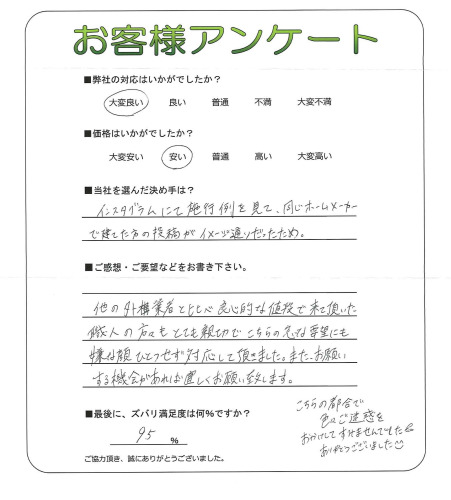 お客様アンケート
■弊社の対応はいかがでしたか？
大変良い 良い 普通 不満 大変不満
■価格はいかがでしたか？
大変安い 安い 普通 高い 大変高い
■当社を選んだ決め手は？
インスタグラムにて施行例を見て、同じホームメーカー
で建てた方の投稿がイメージ通りだったため。
■ご感想・ご要望などをお書き下さい。
他の外構業者と比べ良心的な値段で来て頂いた
職人の方々もとても親切でこちらの急な要望にも
嫌な顔ひとつせず対応して頂きました。また、お願い
する機会があれば宜しくお願い致します。
こちらの都合で
色々ご迷惑を
おかけしてすみませんでした
ありがとうございました
■最後に、ズバリ満足度は何％ですか？
95 ％
ご協力頂き、誠にありがとうございました。